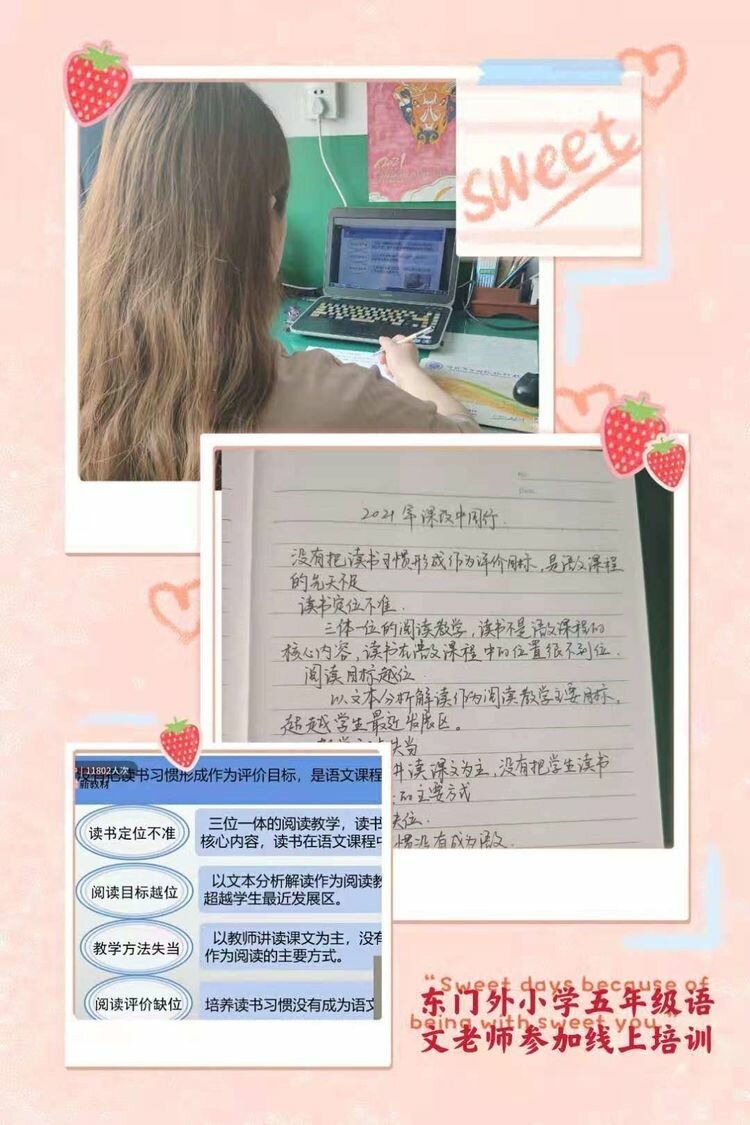 2021
sweet
No.
Date.
2021年课改中国行
没有把读书习惯形成作为评价目标,是语文课程
的先天不足
读书定位不准.
三体一位的阅读教学,读书不是语文课程的
核心内容,读书在语文课程中的位置很不到位.
阅读目标越位
以文本分析解读作为阅读教学主要目标,
超越学生最近发展区。
失当
讲读课文为主,没有把学生读书
的主要方式
缺位.
惯没有成为语文
11802人次
没有把读书习惯形成作为评价目标,是语文课程
新教材
读书定位不准
三位一体的阅读教学,读书
核心内容,读书在语文课程中
阅读目标越位
以文本分析解读作为阅读教
超越学生最近发展区。
教学方法失当
以教师讲读课文为主,没有
作为阅读的主要方式。
阅读评价缺位
培养读书习惯没有成为语文
“Sweet days because of
being with sweet you
东门外小学五年级语
文老师参加线上培训